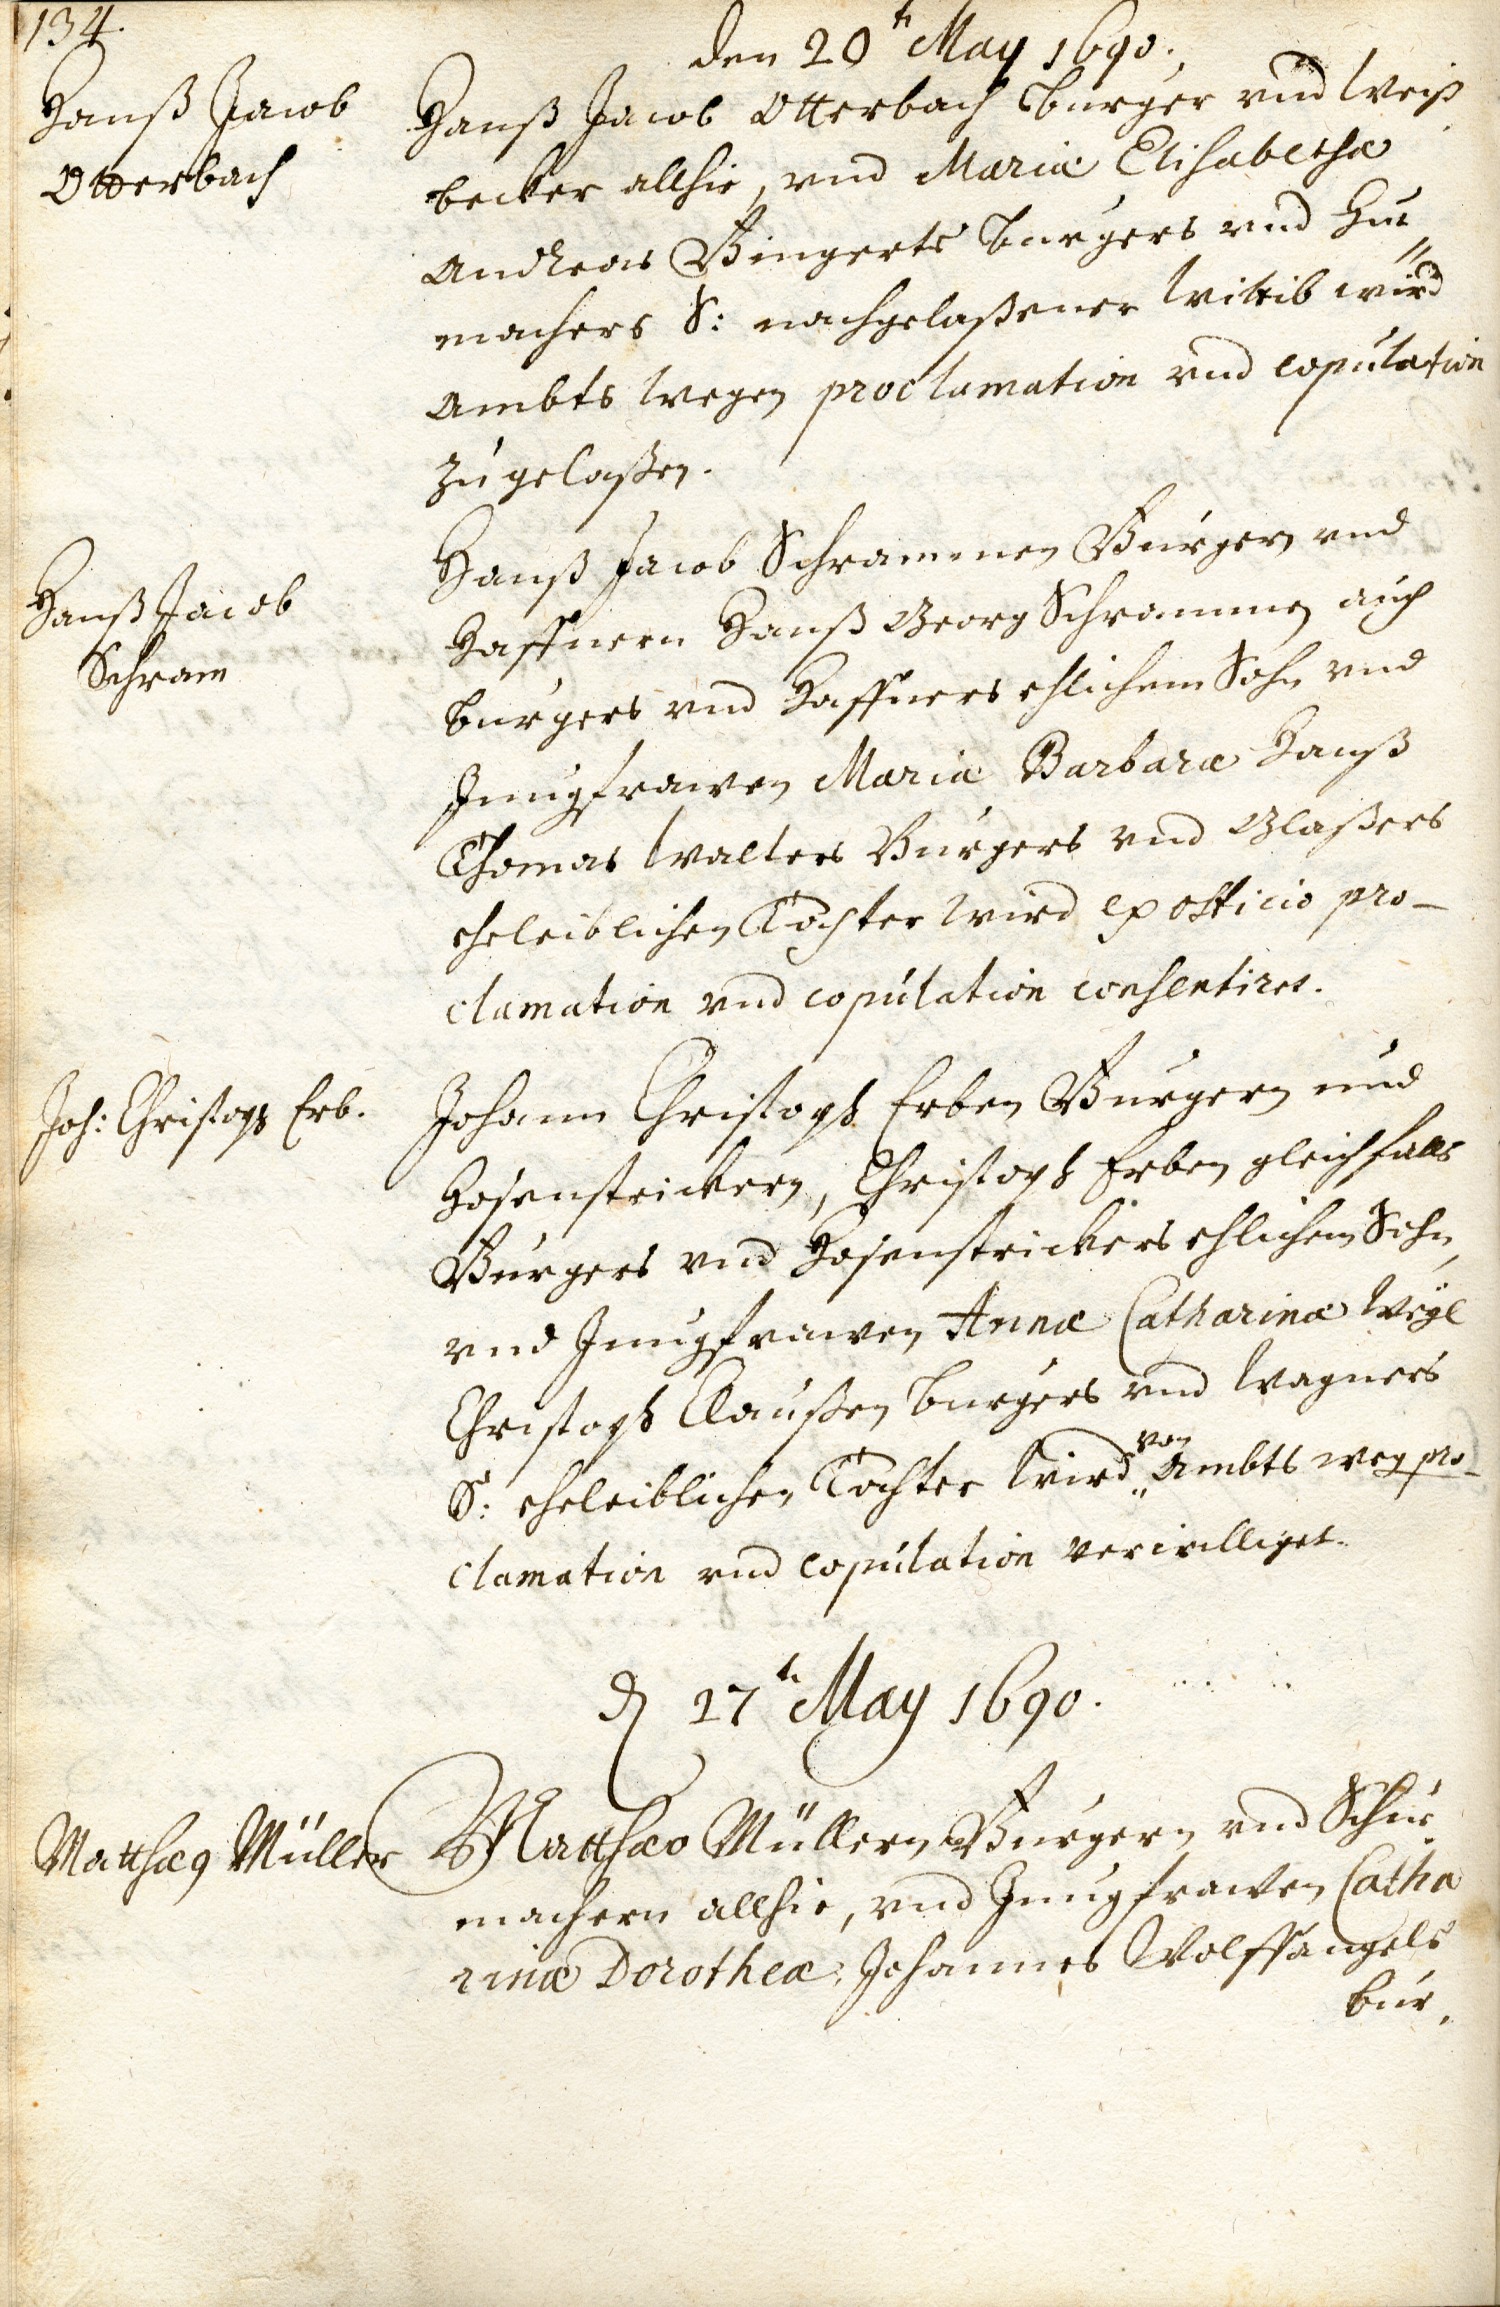 134.
den 20t May 1690.
Hanß Jacob
Otterbach
Hanß Jacob Otterbach burger vnd Weiß
becker allhie, vnd Mariæ Elisabethæ
Andreas Bingerts burgers vnd Hut„
machers S: nachgelaßener Wittib wird
Ambts wegen proclamation vnd copulation
zugelaßen.
Hanß Jacob
Schram
Hanß Jacob Schrammen Burgern vnd
Haffnern Hanß Georg Schrammen auch
burgers vnd Haffners ehlichem Sohn vnd
Jungfrawen Mariæ Barbaræ Hanß
Thomas Walters Burgers vnd Glaßers
eheleiblichen Tochter wird ex officio pro-
clamation vnd copulation consentiret.
Joh: Christoph Erb.
Johann Christoph Erben Burgern und
Hosenstrickern, Christoph Erben gleichfalls
Burgers vnd Hosenstrickers ehlichem Sohn,
vnd Jungfrawen Annæ Catharinæ Weyl
Christoph Claußen burgers vnd Wagners
S: eheleiblichen Tochter wird von Ambts weg pro-
clamation vnd copulation verwilliget.
d 27t May 1690.
Matthæ9 Müller
Matthæo Müllern Burgern vnd Schu
machern allhie, vnd Jungfrawen Catha
rinæ Dorotheæ, Johannes Wolffsangels
bur,